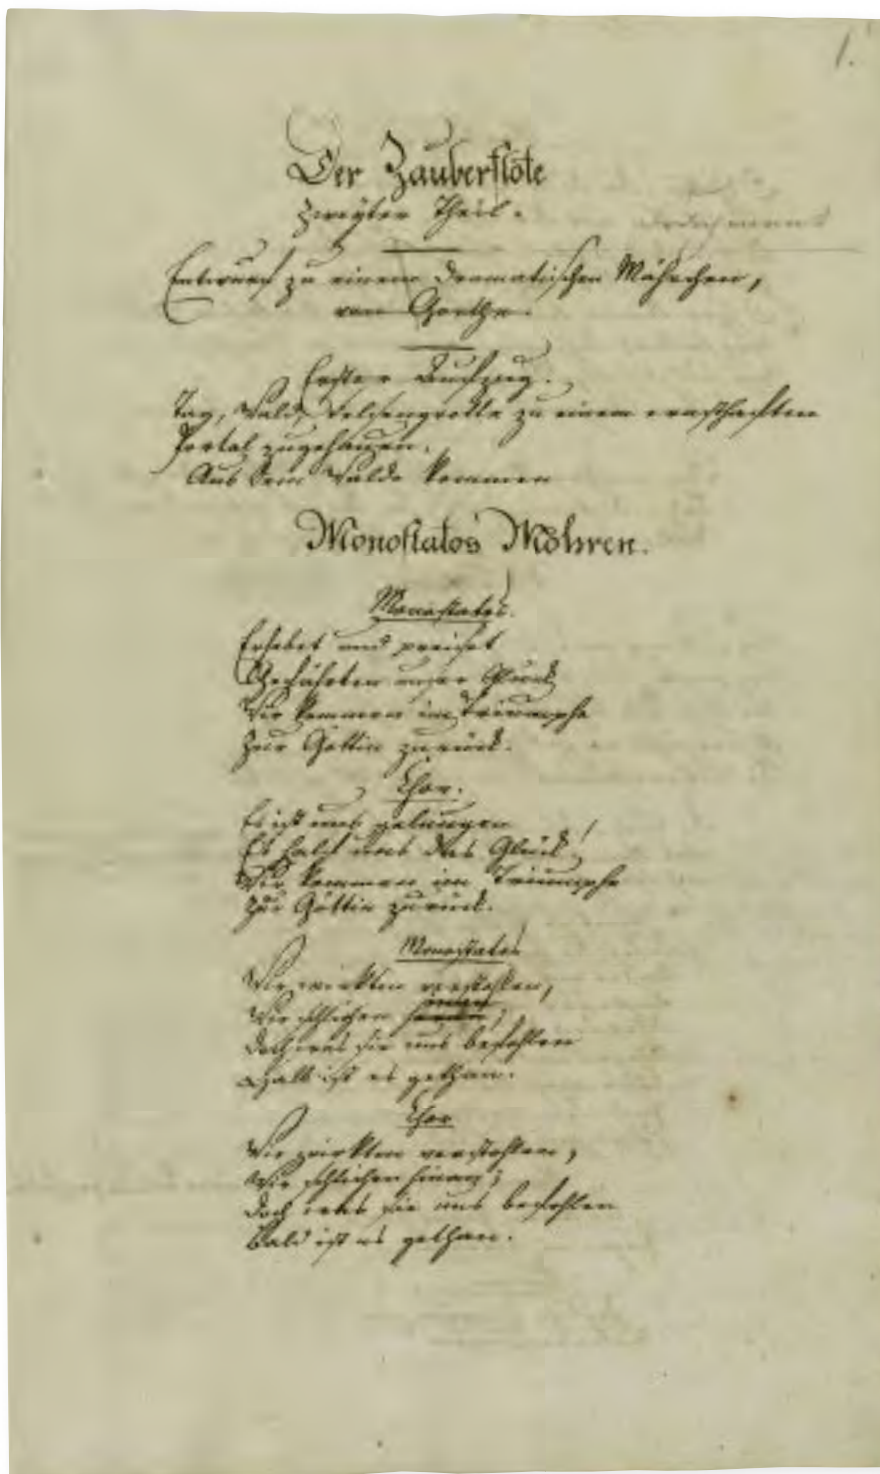 1.
Der Zauberflöte
Zweyter Theil.
Entwurf zu einem dramatischen Mährchen,
von Goethe.
Erster Aufzug.
Tag, Wald, Felsengrotte zu einem ernsthaften
Portal zugehauen.
Aus dem Walde kommen
Monostatos Mohren.
Monostatos.
Erhebet und preiset
Gefährten unser Glück
Wir kommen im Triumphe
Zur Göttin zurück.
Chor.
Es ist uns gelungen
Es half uns das Glück!
Wir kommen im Triumphe
Zur Göttin zurück.
Monostatos
Wir wirkten verstohlen,
Wir schlichen hinan;
Doch was sie uns befohlen
Halb ist es gethan.
Chor
Wir wirkten verstohlen,
Wir schlichen hinan;
Doch was sie uns befohlen
Bald ist es gethan.